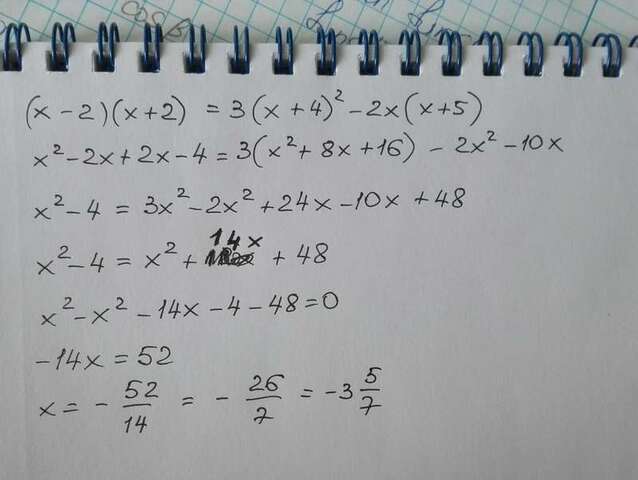 cos β
(x - 2)(x + 2) = 3(x + 4)² - 2x(x + 5)
x² - 2x + 2x - 4 = 3(x² + 8x + 16) - 2x² - 10x
x² - 4 = 3x² - 2x² + 24x - 10x + 48
x² - 4 = x² + 14x + 48
x² - x² - 14x - 4 - 48 = 0
-14x = 52
x = - 52/14 = - 26/7 = -3 5/7